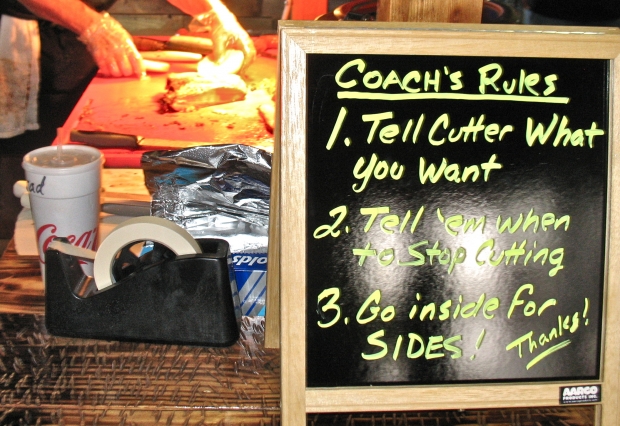 COACH'S RULES
1. Tell Cutter What
You Want
2. Tell 'em when
to Stop Cutting
3. Go inside for
SIDES! Thanks!
AARCO
PRODUCTS INC.
ad